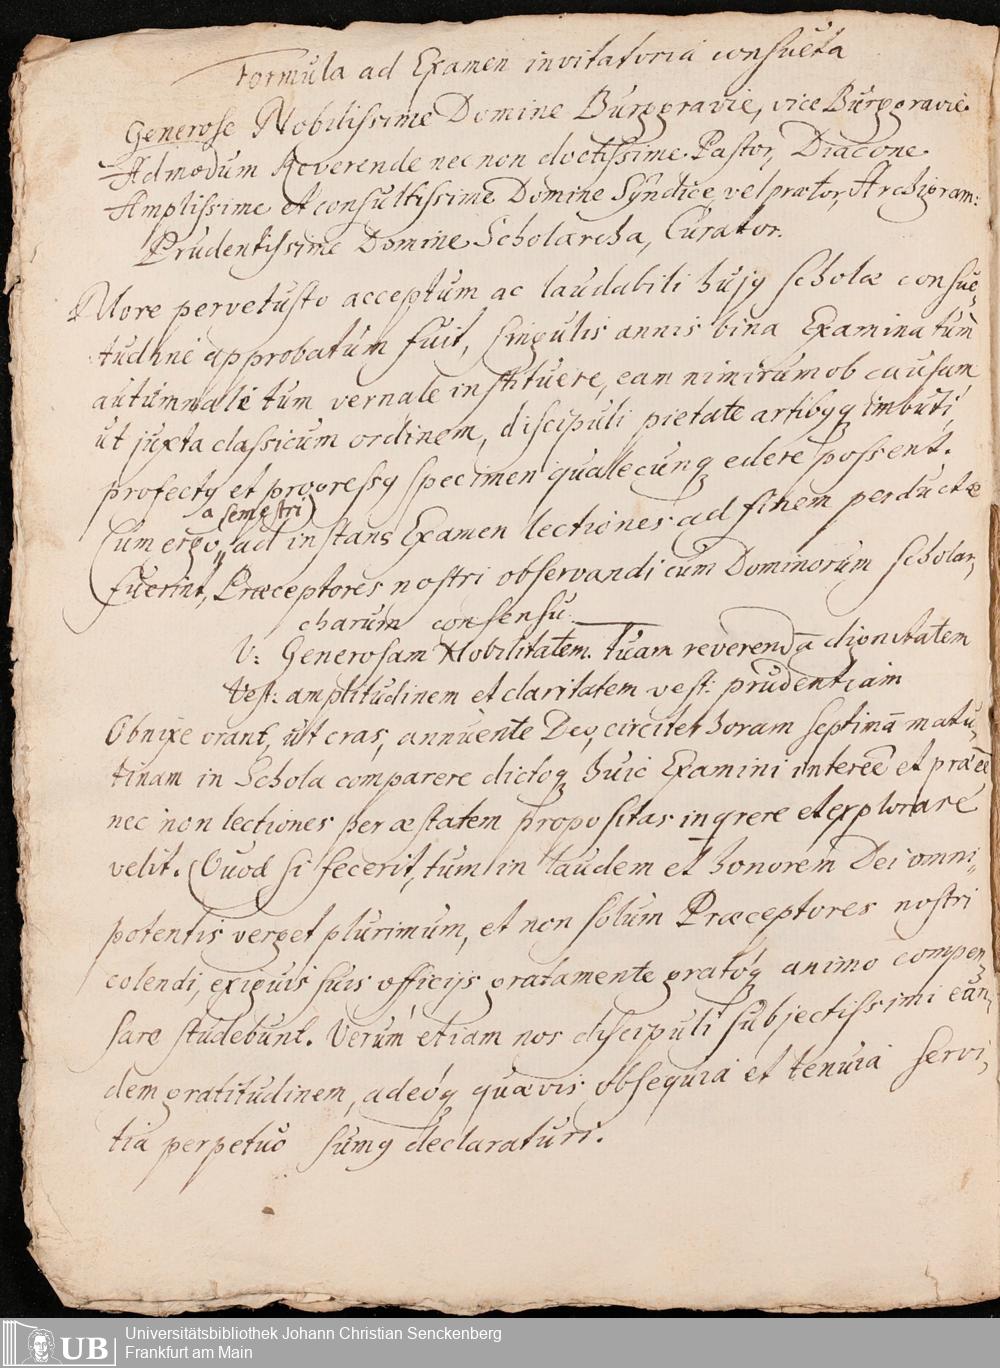 Formula ad Examen invitatoria consueta
Generose Nobilissime Domine Burggravie, vice Burggravie.
Admodum Reverende nec non doctissime Pastor, Diacone.
Amplissime et consultissime Domine Syndice, vel praetor, Archigram:
Prudentissime Domine Scholarcha, Curator.
More pervetusto acceptum ac laudabili hujꝯ scholæ consue,
tudine approbatum fuit, singulis annis bina Examina tum̄
autumnale tum vernale instituere, eam nimirum ob causam
ut juxta classicum ordinem, discipuli pietate artibꝯq imbuti
profectꝯ et progressꝯ specimen qualecunq edere possent.
a semestri)
Cum ergo,, ad instans Examen lectiones ad finem perductæ
fuerint, Præceptores nostri observandi cum Dominorum Scholar,
charum consensu.
V: Generosam Nobilitatem. tuam reverendā dignitatem
Vest: amplitudinem et claritatem vest: prudentiam
Obnixe orant, ut cras, annuente Deo, circiter horam septimā matu,
tinam in Schola comparere dictoq huic Examini intereē et præeē
nec non lectiones per æstatem propositas inqrere et explorare
velit. Quod si fecerit, tum in laudem et honorem Dei omni,
potentis verget plurimum, et non solum Præceptores nostri
colendi, exiguis suis officijs gratamente gratóq animo compen,
sare studebunt. Verúm etiam nos discipuli subjectissimi ean,
dem gratitudinem, adeóq quævis obsequia et tenuia servi,
tia perpetuo sumꝯ declaraturi.
UB
Universitätsbibliothek Johann Christian Senckenberg
Frankfurt am Main